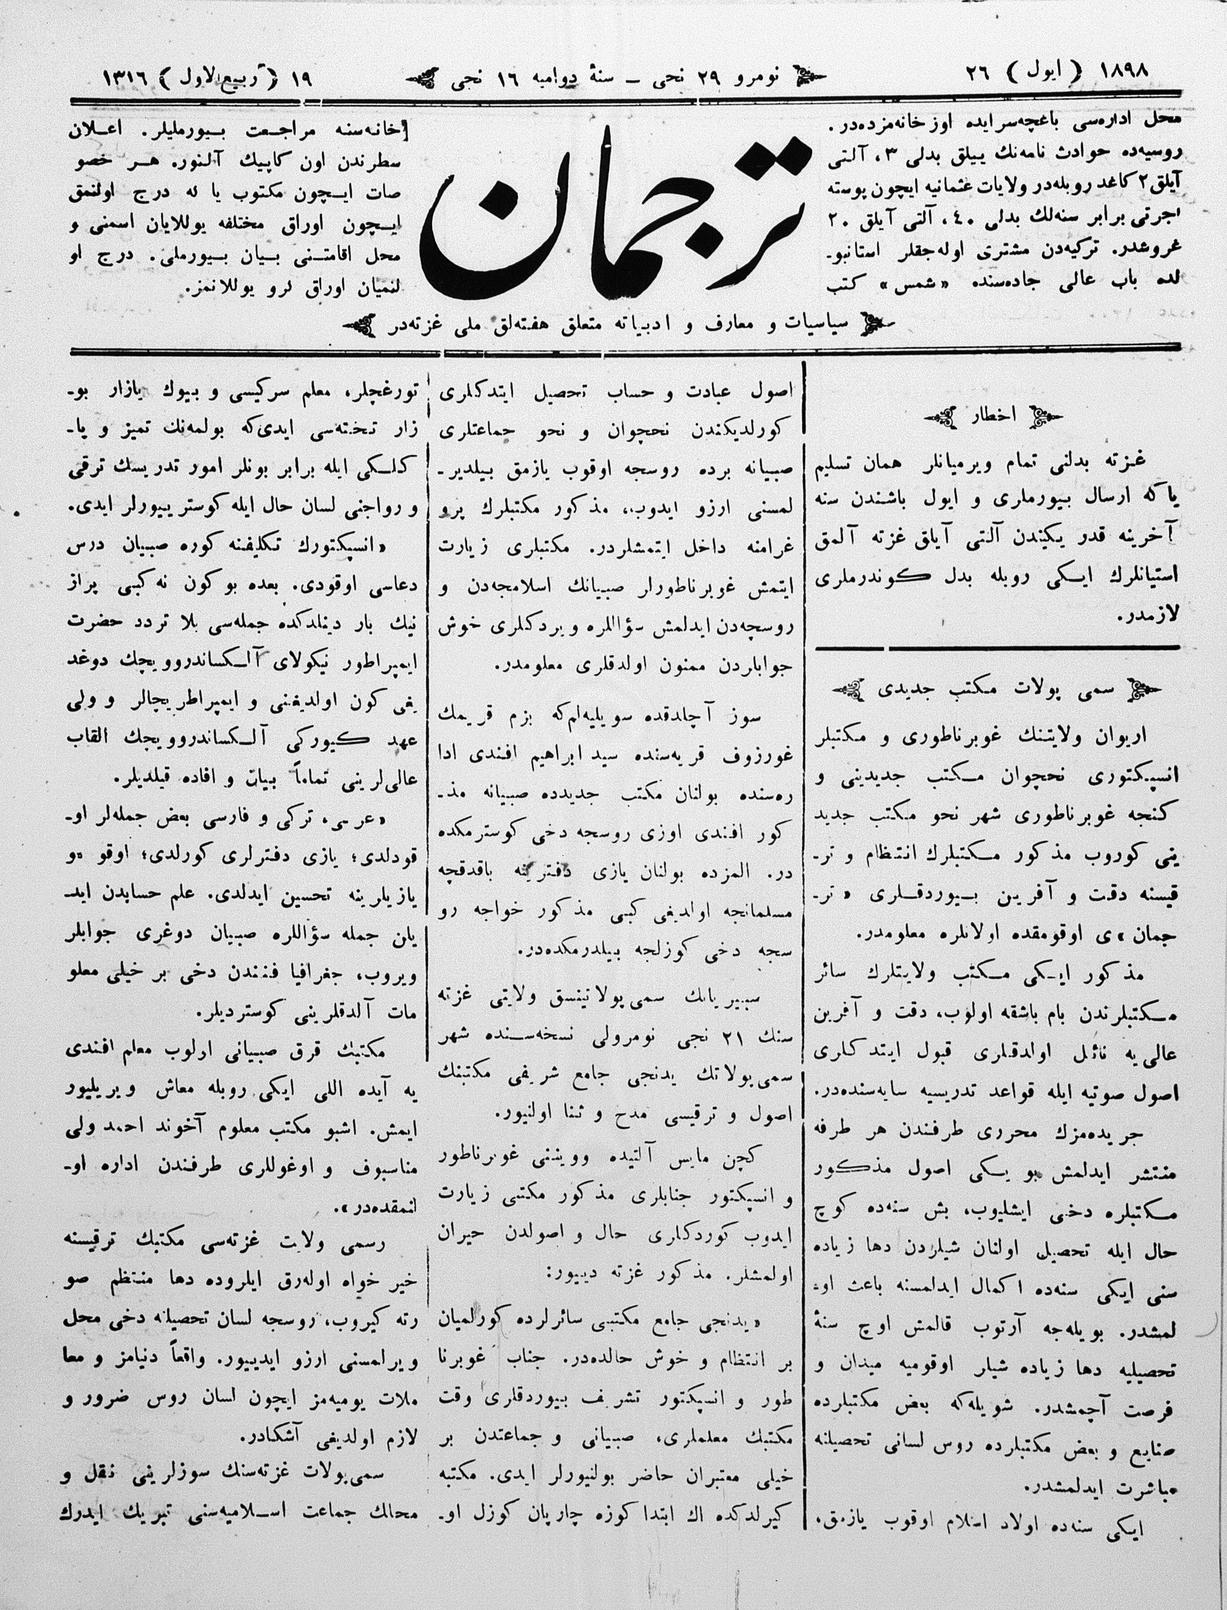 ١٨٩٨ ( ايول ) ٢٦
نومرو ٢٩ نجى ـ سنهٔ دواميه ١٦ نجى
١٩ ( ربيع الاول ) ١٣١٦
محل اداره‌سى باغچه‌سرايده اوز خانه‌مزده‌در.
روسيه‌ده حوادث نامه‌نك ييللق بدلى ٣، آلتى
آيلق ٢ كاغد روبله‌در ولايات عثمانيه ايچون پوسته
اجرتى برابر سنه‌لك بدلى ٤٠، آلتى آيلق ٢٠
غروشدر. تركيه‌دن مشترى اوله‌جقلر استانبو‍ـ
لده باب عالى جاده‌سنده «شمس» كتب
ترجمان
خانه‌سنه مراجعت بيورمليلر. اعلان
سطرندن اون كاپيك آلنور. هر خصو
صات ايچون مكتوب يا له درج اولنمق
ايچون اوراق مختلفه يوللايان اسمنى و
محل اقامتنى بيان بيورملى. درج او
لنميان اوراق كرو يوللانمز.
سياسيات و معارف و ادبياته متعلق هفته‌لق ملى غزته‌در
اخطار
غزته بدلنى تمام ويرميانلر همان تسليم
ياكه ارسال بيورملرى و ايول باشندن سنه
آخرينه قدر يكيدن آلتى آيلق غزته آلمق
استيانلرك ايكى روبله بدل كوندرملرى
لازمدر.
سمى پولات مكتب جديدى
اريوان ولايتنك غوبرناطورى و مكتبلر
انسپكتورى نخچوان مكتب جديدينى و
كنجه غوبرناطورى شهر نخو مكتب جديد
ينى كوروب مذكور مكتبلرك انتظام و تر‍ـ
قيسنه دقت و آفرين بيوردقلرى «تر‍ـ
جمان»ى اوقومقده اولانلره معلومدر.
مذكور ايكى مكتب ولايتلرك سائر
مكتبلرندن بام باشقه اولوب، دقت و آفرين
عالى‌يه نائل اولدقلرى قبول ايتدكلرى
اصول صوتيه ايله قواعد تدريسيه سايه‌سنده‌در.
جريده‌مزك محررى طرفندن هر طرفه
منتشر ايدلمش بو يكى اصول مذكور
مكتبلره دخى ايشليوب، بش سنه‌ده كوچ
حال ايله تحصيل اولنان شيلردن دها زياده
سنى ايكى سنه‌ده اكمال ايدلمسنه باعث او‍ـ
لمشدر. بويله‌جه آرتوب قالمش اوچ سنهٔ
تحصيليه دها زياده شيلر اوقوميه ميدان و
فرصت آچمشدر. شويله‌كه بعض مكتبلرده
صنايع و بعض مكتبلرده روس لسانى تحصيلنه
مباشرت ايدلمشدر.
ايكى سنه‌ده اولاد اسلام اوقوب يازمق،
اصول عبادت و حساب تحصيل ايتدكلرى
كورلديكندن نخچوان و نخو جماعتلرى
صبيانه برده روسجه اوقوب يازمق بيلدير‍ـ
لمسنى ارزو ايدوب، مذكور مكتبلرك پرو
غرامنه داخل ايتمشلردر. مكتبلرى زيارت
ايتمش غوبرناطورلر صبيانك اسلامجه‌دن و
روسچه‌دن ايدلمش سؤاللره ويردكلرى خوش
جوابلردن ممنون اولدقلرى معلومدر.
سوز آچلدقده سويليه‌لم‌كه بزم قريمك
غورزوف قريه‌سنده سيد ابراهيم افندى ادا
ره‌سنده بولنان مكتب جديدده صبيانه مذ‍ـ
كور افندى اوزى روسجه دخى كوسترمكده
در. المزده بولنان يازى دفترينه باقدقچه
مسلمانجه اولديغى كبى مذكور خواجه رو
سجه دخى كوزلجه بيلدرمكده‌در.
سيبيريانك سمى‌پولاتينسق ولايتى غزته
سنك ٢١ نجى نومرولى نسخه‌سنده شهر
سمى‌پولاتك يدنجى جامع شريفى مكتبنك
اصول و ترقيسى مدح و ثنا اولنيور.
كچن مايس آلتيده وويننى غوبرناطور
و انسپكتور جنابلرى مذكور مكتبى زيارت
ايدوب كوردكلرى حال و اصولدن حيران
اولمشلر. مذكور غزته دييور:
«يدنجى جامع مكتبى سائرلرده كورلميان
بر انتظام و خوش حالده‌در. جناب غوبرنا
طور و انسپكتور تشريف بيوردقلرى وقت
مكتبك معلملرى، صبيانى و جماعتدن بر
خيلى معتبران حاضر بولنيورلر ايدى. مكتبه
كيرلدكده اك ابتدا كوزه چارپان كوزل او‍ـ
تورغچلر، معلم سركيسى و بيوك يازار بو‍ـ
زار تخته‌سى ايدى‌كه بولمه‌نك تميز و يا‍ـ
كلكى ايله برابر بونلر امور تدريسك ترقى
و رواجنى لسان حال ايله كوستر ييورلر ايدى.
«انسپكتورك تكليفنه كوره صبيان درس
دعاسى اوقودى. بعده بو كون نه كبى پراز
نيك بار دينلدكده جمله‌سى بلا تردد حضرت
ايمپراطور نيكولاى آلكساندروويچك دوغد
يغى كون اولديغنى و ايمپراطريچالر و ولى
عهد كيوركى آلكساندروويجك القاب
عالى‌لرينى تماماً بيان و افاده قيلديلر.
«عربى، تركى و فارسى بعض جمله‌لر او‍ـ
قودلدى؛ يازى دفترلرى كورلدى؛ اوقو و
يازيلرينه تحسين ايدلدى. علم حسابدن ايد‍ـ
يلن جمله سؤاللره صبيان دوغرى جوابلر
ويروب، جغرافيا فنندن دخى بر خيلى معلو
مات آلدقلرينى كوسترديلر.
مكتبك قرق صبيانى اولوب معلم افندى
يه آيده اللى ايكى روبله معاش ويريليور
ايمش. اشبو مكتب معلوم آخوند احمد ولى
مناسبوف و اوغوللرى طرفندن اداره او‍ـ
لنمقده‌در».
رسمى ولايت غزته‌سى مكتبك ترقيسنه
خير خواه اوله‌رق ايلروده دها منتظم صو
رته كيروب، روسجه لسان تحصيلنه دخى محل
ويرلمسنى ارزو ايدييور. واقعاً دنيامز و معا
ملات يوميه‌مز ايچون لسان روس ضرور و
لازم اولديغى آشكادر.
سمى‌پولات غزته‌سنك سوزلرينى نقل و
محالك جماعت اسلاميه‌سنى تبريك ايدرك